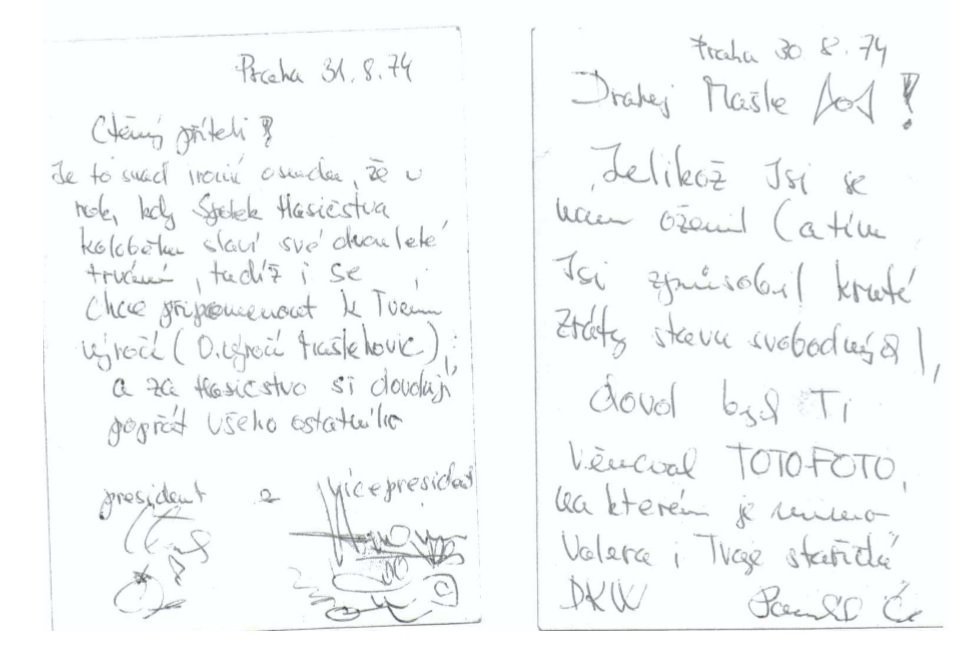 Praha 31.8.74
Ctěný příteli!
Je to snad ironií osudu, že v
rok, kdy Spolek Hasičstva
koloběhu slaví své dvouleté
trvání, tudíž i se
chce připomenout k Tvému
výročí (0. výročí Mašlehovic),
a za Hasičstvo si dovoluji
popřát všeho ostatního
president a Vicepresident
Praha 30.8.74
Drahej Mašle !
Jelikož Jsi se
nám oženil (a tím
Jsi způsobil kruté
ztráty stavu svobodných),
dovol bych Ti
věnoval TOTOFOTO,
na kterém je mimo
Valera i Tvoje stařičká
DKW